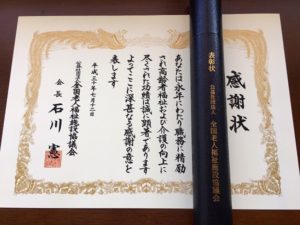 感謝状
あなたは永年にわたり職務に精励
され高齢者福祉および介護の向上に
尽くされた功績は誠に顕著であります
よってここに深甚なる感謝の意を
表します
平成三十年七月十二日
公益社団法人 全国老人福祉施設協議会
会長 石川 憲
表彰状
公益社団法人 全国老人福祉施設協議会